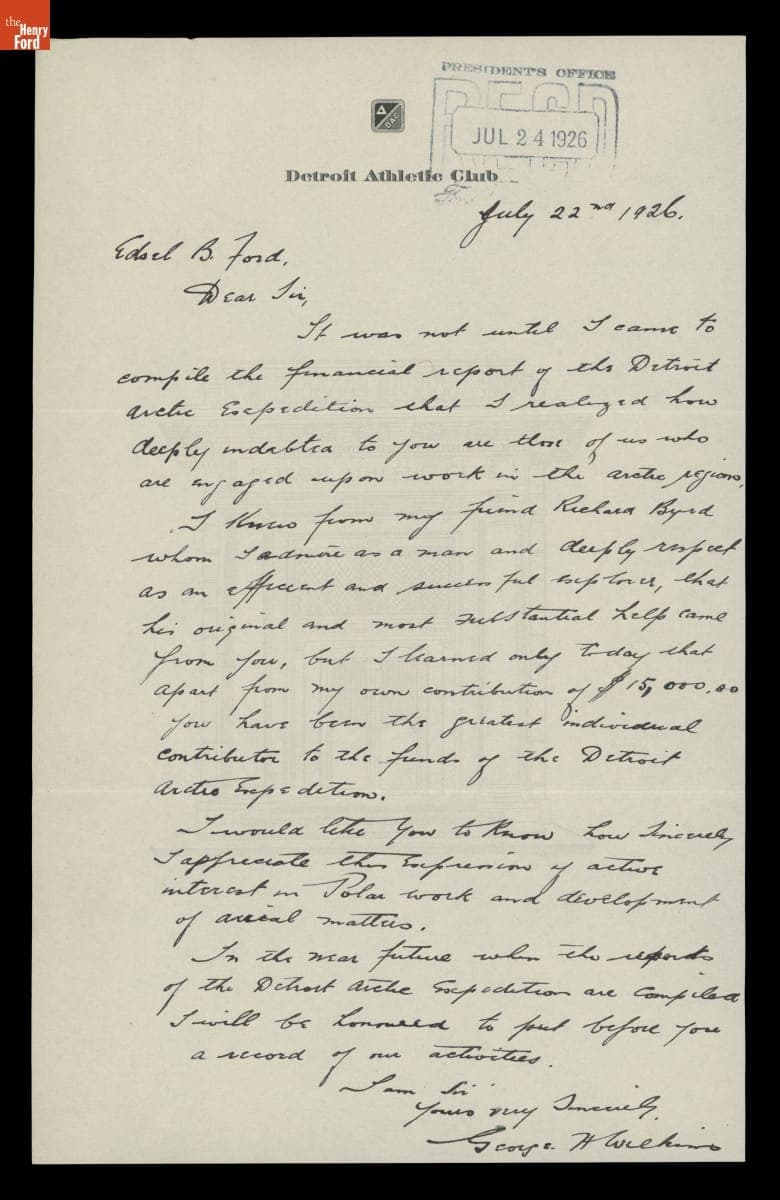 the
Henry
Ford
PRESIDENT'S OFFICE
REC'D
JUL 24 1926
DAC
Detroit Athletic Club
July 22nd 1926.
Edsel B. Ford,
Dear Sir,
It was not until I came to
compile the financial report of the Detroit
Arctic Expedition that I realized how
deeply indebted to you are those of us who
are engaged upon work in the arctic regions.
I knew from my friend Richard Byrd
whom I admire as a man and deeply respect
as an efficient and successful explorer, that
his original and most substantial help came
from you, but I learned only today that
apart from my own contribution of $15,000.00
you have been the greatest individual
contributor to the funds of the Detroit
Arctic Expedition.
I would like you to know how sincerely
I appreciate this expression of active
interest in Polar work and development
of aerial matters.
In the near future when the reports
of the Detroit Arctic Expedition are compiled
I will be honoured to put before you
a record of our activities.
I am Sir
Yours very sincerely,
George H Wilkins